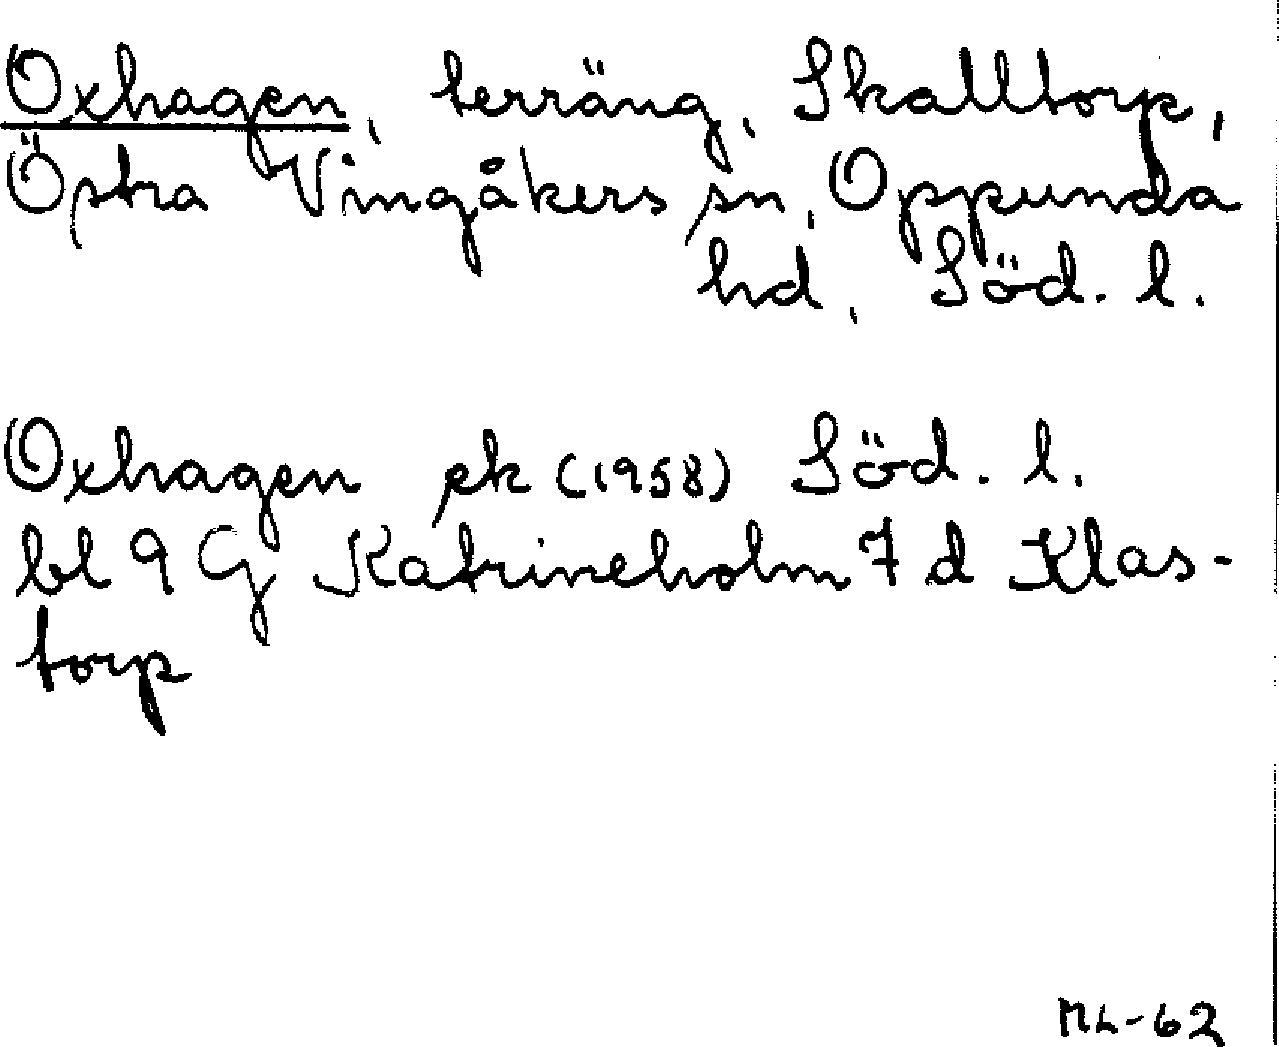 Oxhagen, terräng, Skalltorp,
Östra Vingåkers sn, Oppunda
hd, Söd. l.
Oxhagen ek (1958) Söd. l.
bl 9 G Katrineholm 7 d Klas-
torp
ML-62